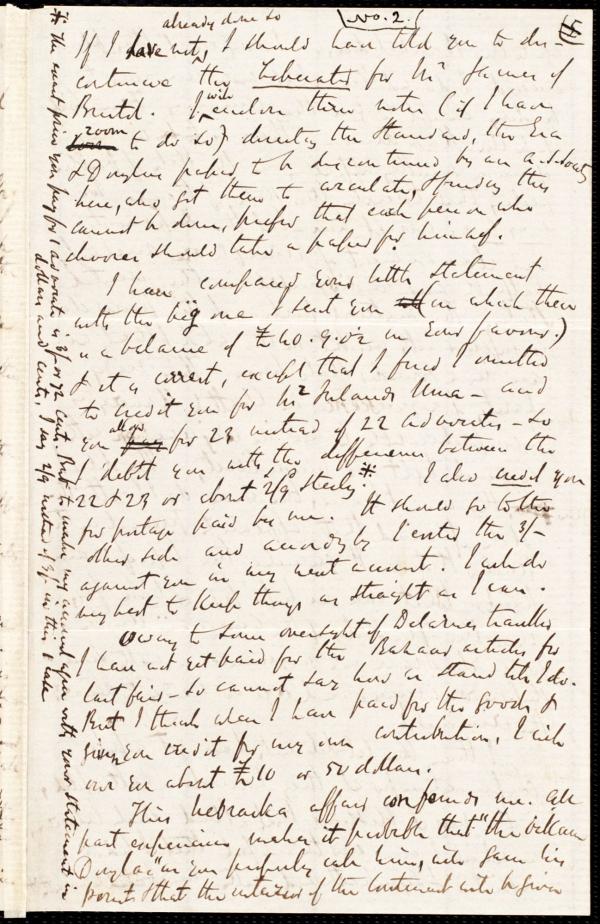 No. 2.
5
already done so
If I have not, I should have told you to dis-
continue the Liberator for Mr James of
Bristol. I will enclose their notes (if I have
room to do so) directing the Standard, the Era
& Douglass paper to be discontinued by an a
here, who got them to circulate, & finding this
cannot be done, prefer that each person who
chooses should take a paper for himself.
I have compared your little statement
with the big one I sent you (in which there
is a balance of £40.9.02 in your favour.)
& it is correct, except that I find I omitted
to credit you for Mr Una - and
you allow for 23 instead of 22 advocates - so
I debit you with the difference between the
22 & 23 or about 2/9 * I also credit you
for postage paid by me. It should go to the
other side and accordingly I enter the 3/-
against you in my next account. I will do
my best to keep things as straight as I can.
Owing to some oversight of
I have not yet paid for the Bazaar articles for
last fair - so cannot say how we stand till I do.
But I think when I have paid for the goods &
given you credit for my own contribution, I will
owe you about £10 or 50 dollars.
This Nebraska affair confounds me. All
past experience makes it probable that "the villain
Douglas" as you properly call him, will gain his
point & that the interior of the continent will be given
* the exact price you pay for 1 advocate is 3/- or 72 cents. But to make my account agree with your statement in
dollars and cents, I say 2/9 instead of 3/- in this case